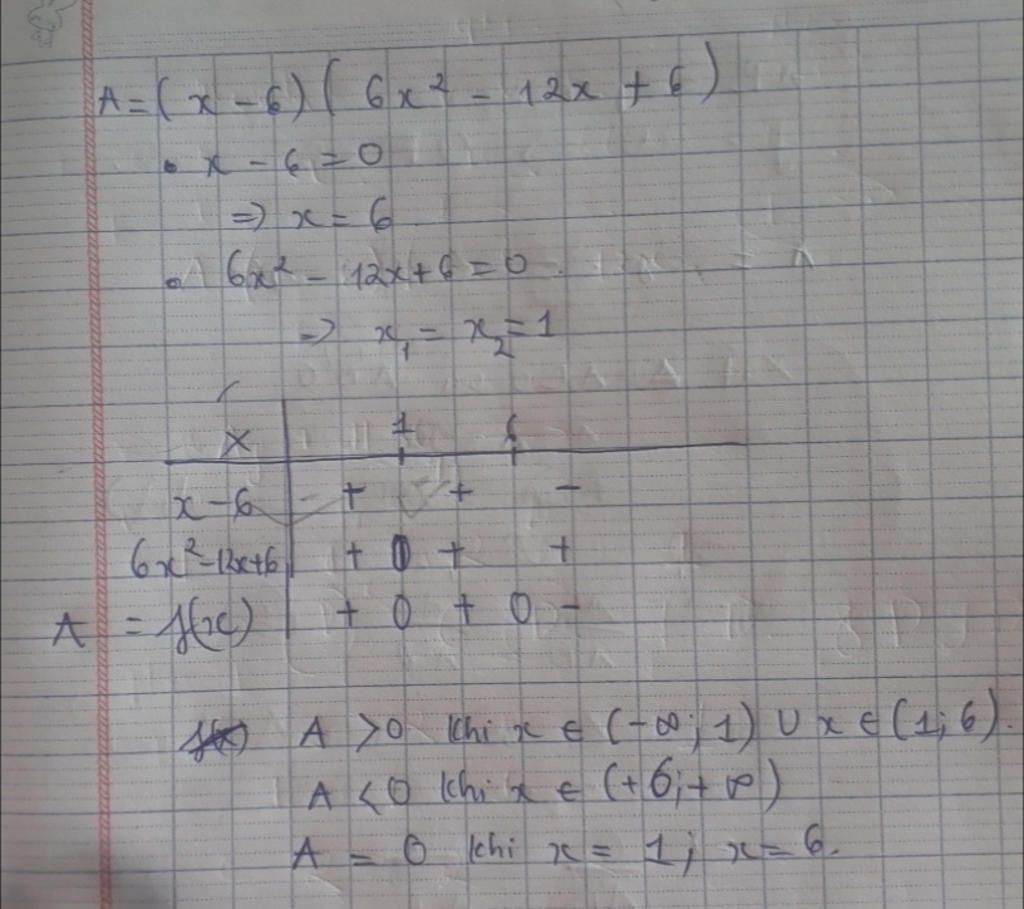 A = (x - 6)( 6x² - 12x + 6 )
• x - 6 = 0
=> x = 6
• 6x² - 12x + 6 = 0
=> x₁ = x₂ = 1
x 1 6
x - 6 + + -
6x² - 12x + 6 + 0 + +
A = f(x) + 0 + 0 -
A > 0 khi x ∈ (-∞; 1) ∪ x ∈ (1; 6).
A < 0 khi x ∈ (+6; + ∞)
A = 0 khi x = 1; x = 6.